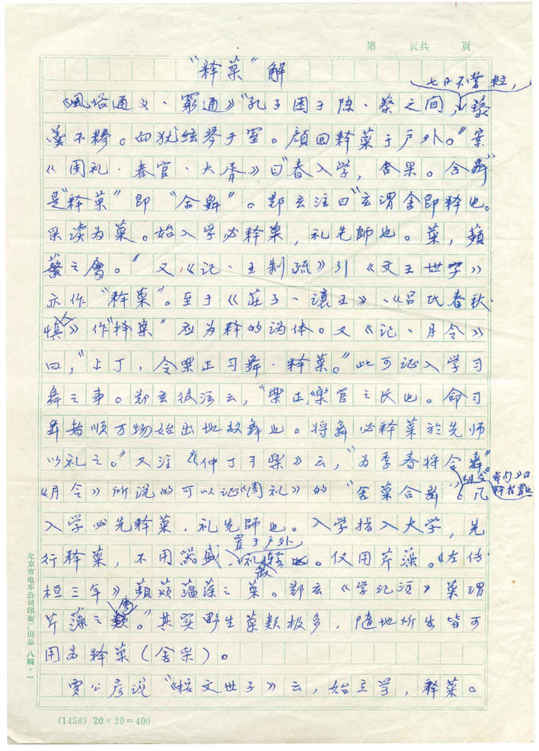 第 頁共 頁
“释菜”解
七日不嘗粒，
《風俗通义·窮通》“孔子困于陳·蔡之间，藜
羹不糁。 弦琴于室。顔回釋菜于户外。”案
《周礼·春官·大胥》曰“春入学，舍采。合舞”
是“释菜”即“舍采”。郑玄注曰“玄谓舍即释也。
采读为菜。始入学必释菜，礼先師也。菜，蘋
蘩之属。”又《记·王制疏》引《文王世子》
亦作“释菜”。至于《莊子·讓王》、《吕氏春秋·
慎人》作“择菜” 为释的 体。又《记·月令》
曰，“上丁，令樂正习舞·释菜。”此可证入学习
舞之事。郑玄彼注云，“樂正樂官之长也。命习
舞者顺万物始出地鼓舞也。将舞必释菜於先师
以礼之。”又注《仲丁习樂》云，“为季春将合樂”
《月令》所说的可以证《周礼》的“舍菜合舞”，凡
入学必先释菜，礼先師也。入学指入大学，先
行释菜，不用器盛， 置于户外 仅用芹藻。《左传·
桓三年》蘋蘩蕰藻之菜。郑玄《学记注》菜谓
芹藻之属。”其实野生菜类极多，随地所出皆可
用为释菜（舍采）。
贾公彦说《 文王世子》云，始立学，释菜。
北京市电车公司印刷厂出品 八
(1458) 20×20=400